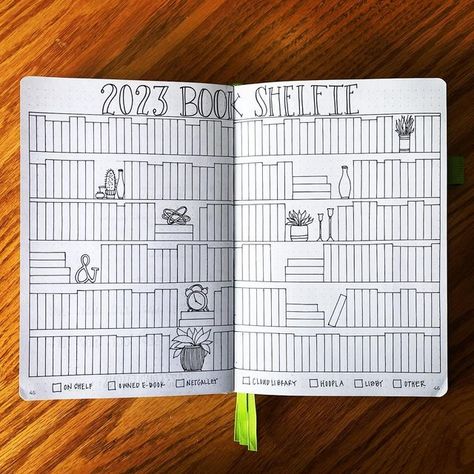 2023 BOOK SHELFIE
&
ON SHELF OWNED E-BOOK NETGALLEY CLOUD LIBRARY HOOPLA LIBBY OTHER